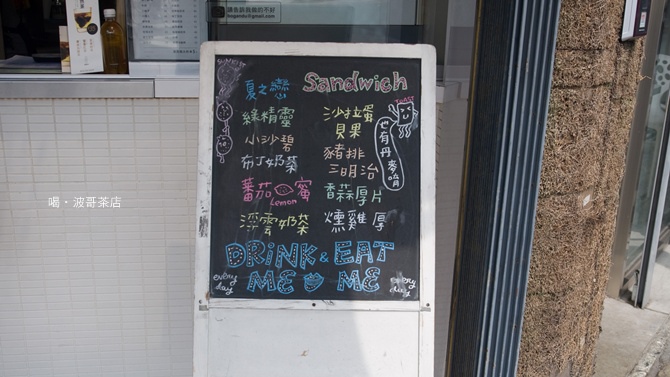 請告訴我他的不好
喝・波哥茶店
SUMMER
夏之戀
綠精靈
小沙碧
布丁奶茶
蕃茄蜜
Lemon
浮雲奶茶
Sandwich
沙拉蛋
貝果
豬排
三明治
香蒜厚片
燻雞厚
TOAST
也有丹麥唷
DRiNK & EAT
ME ME
every day
every day